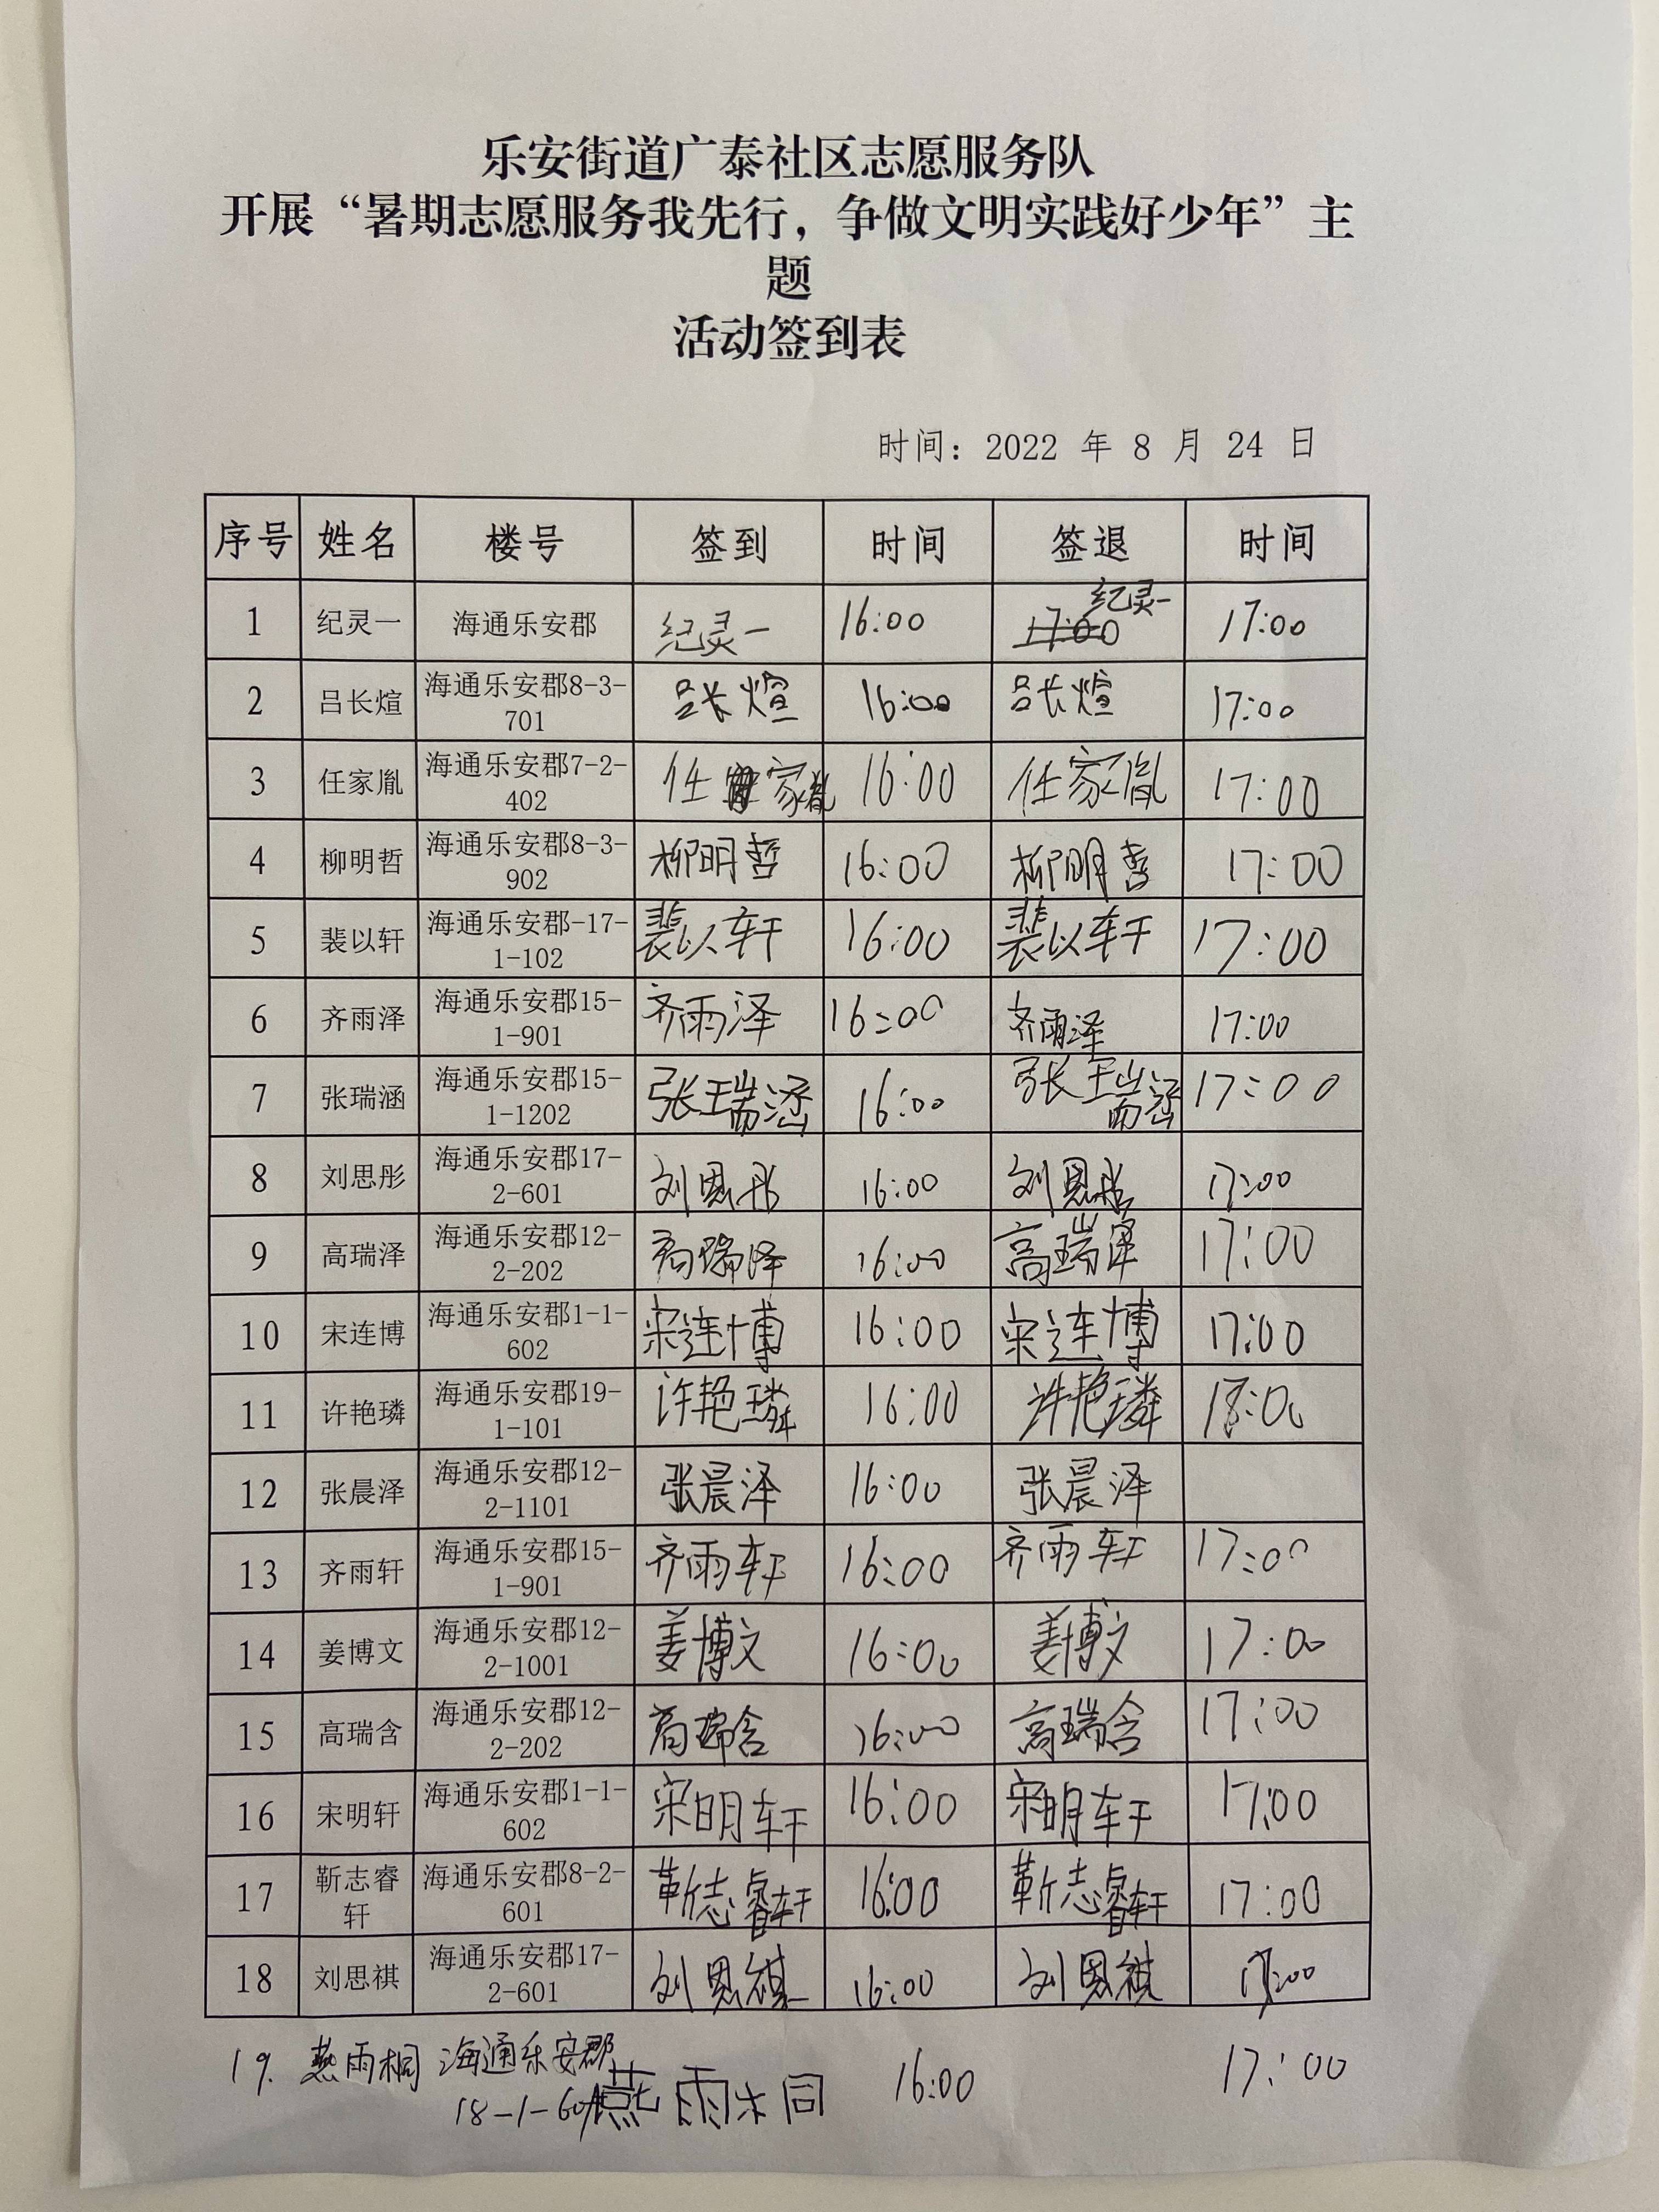 乐安街道广泰社区志愿服务队
开展“暑期志愿服务我先行，争做文明实践好少年”主
题
活动签到表
时间：2022 年 8 月 24 日
序号 姓名 楼号 签到 时间 签退 时间
1 纪灵一 海通乐安郡 纪灵一 16:00 17:00 纪灵一 17:00
2 吕长煊 海通乐安郡8-3-
701 吕长煊 16:00 吕长煊 17:00
3 任家胤 海通乐安郡7-2-
402 任家胤 16:00 任家胤 17:00
4 柳明哲 海通乐安郡8-3-
902 柳明哲 16:00 柳明哲 17:00
5 裴以轩 海通乐安郡-17-
1-102 裴以轩 16:00 裴以轩 17:00
6 齐雨泽 海通乐安郡15-
1-901 齐雨泽 16:00 齐雨泽 17:00
7 张瑞涵 海通乐安郡15-
1-1202 张瑞涵 16:00 张瑞涵 17:00
8 刘思彤 海通乐安郡17-
2-601 刘思彤 16:00 刘思彤 17:00
9 高瑞泽 海通乐安郡12-
2-202 高瑞泽 16:00 高瑞泽 17:00
10 宋连博 海通乐安郡1-1-
602 宋连博 16:00 宋连博 17:00
11 许艳璘 海通乐安郡19-
1-101 许艳璘 16:00 许艳璘
12 张晨泽 海通乐安郡12-
2-1101 张晨泽 16:00 张晨泽
13 齐雨轩 海通乐安郡15-
1-901 齐雨轩 16:00 齐雨轩 17:00
14 姜博文 海通乐安郡12-
2-1001 姜博文 16:00 姜博文 17:00
15 高瑞含 海通乐安郡12-
2-202 高瑞含 16:00 高瑞含 17:00
16 宋明轩 海通乐安郡1-1-
602 宋明轩 16:00 宋明轩 17:00
17 靳志睿
轩 海通乐安郡8-2-
601 靳志睿轩 16:00 靳志睿轩 17:00
18 刘思祺 海通乐安郡17-
2-601 刘思祺 16:00 刘思祺 17:00
19. 燕雨桐 海通乐安郡
燕雨桐 16:00 17:00